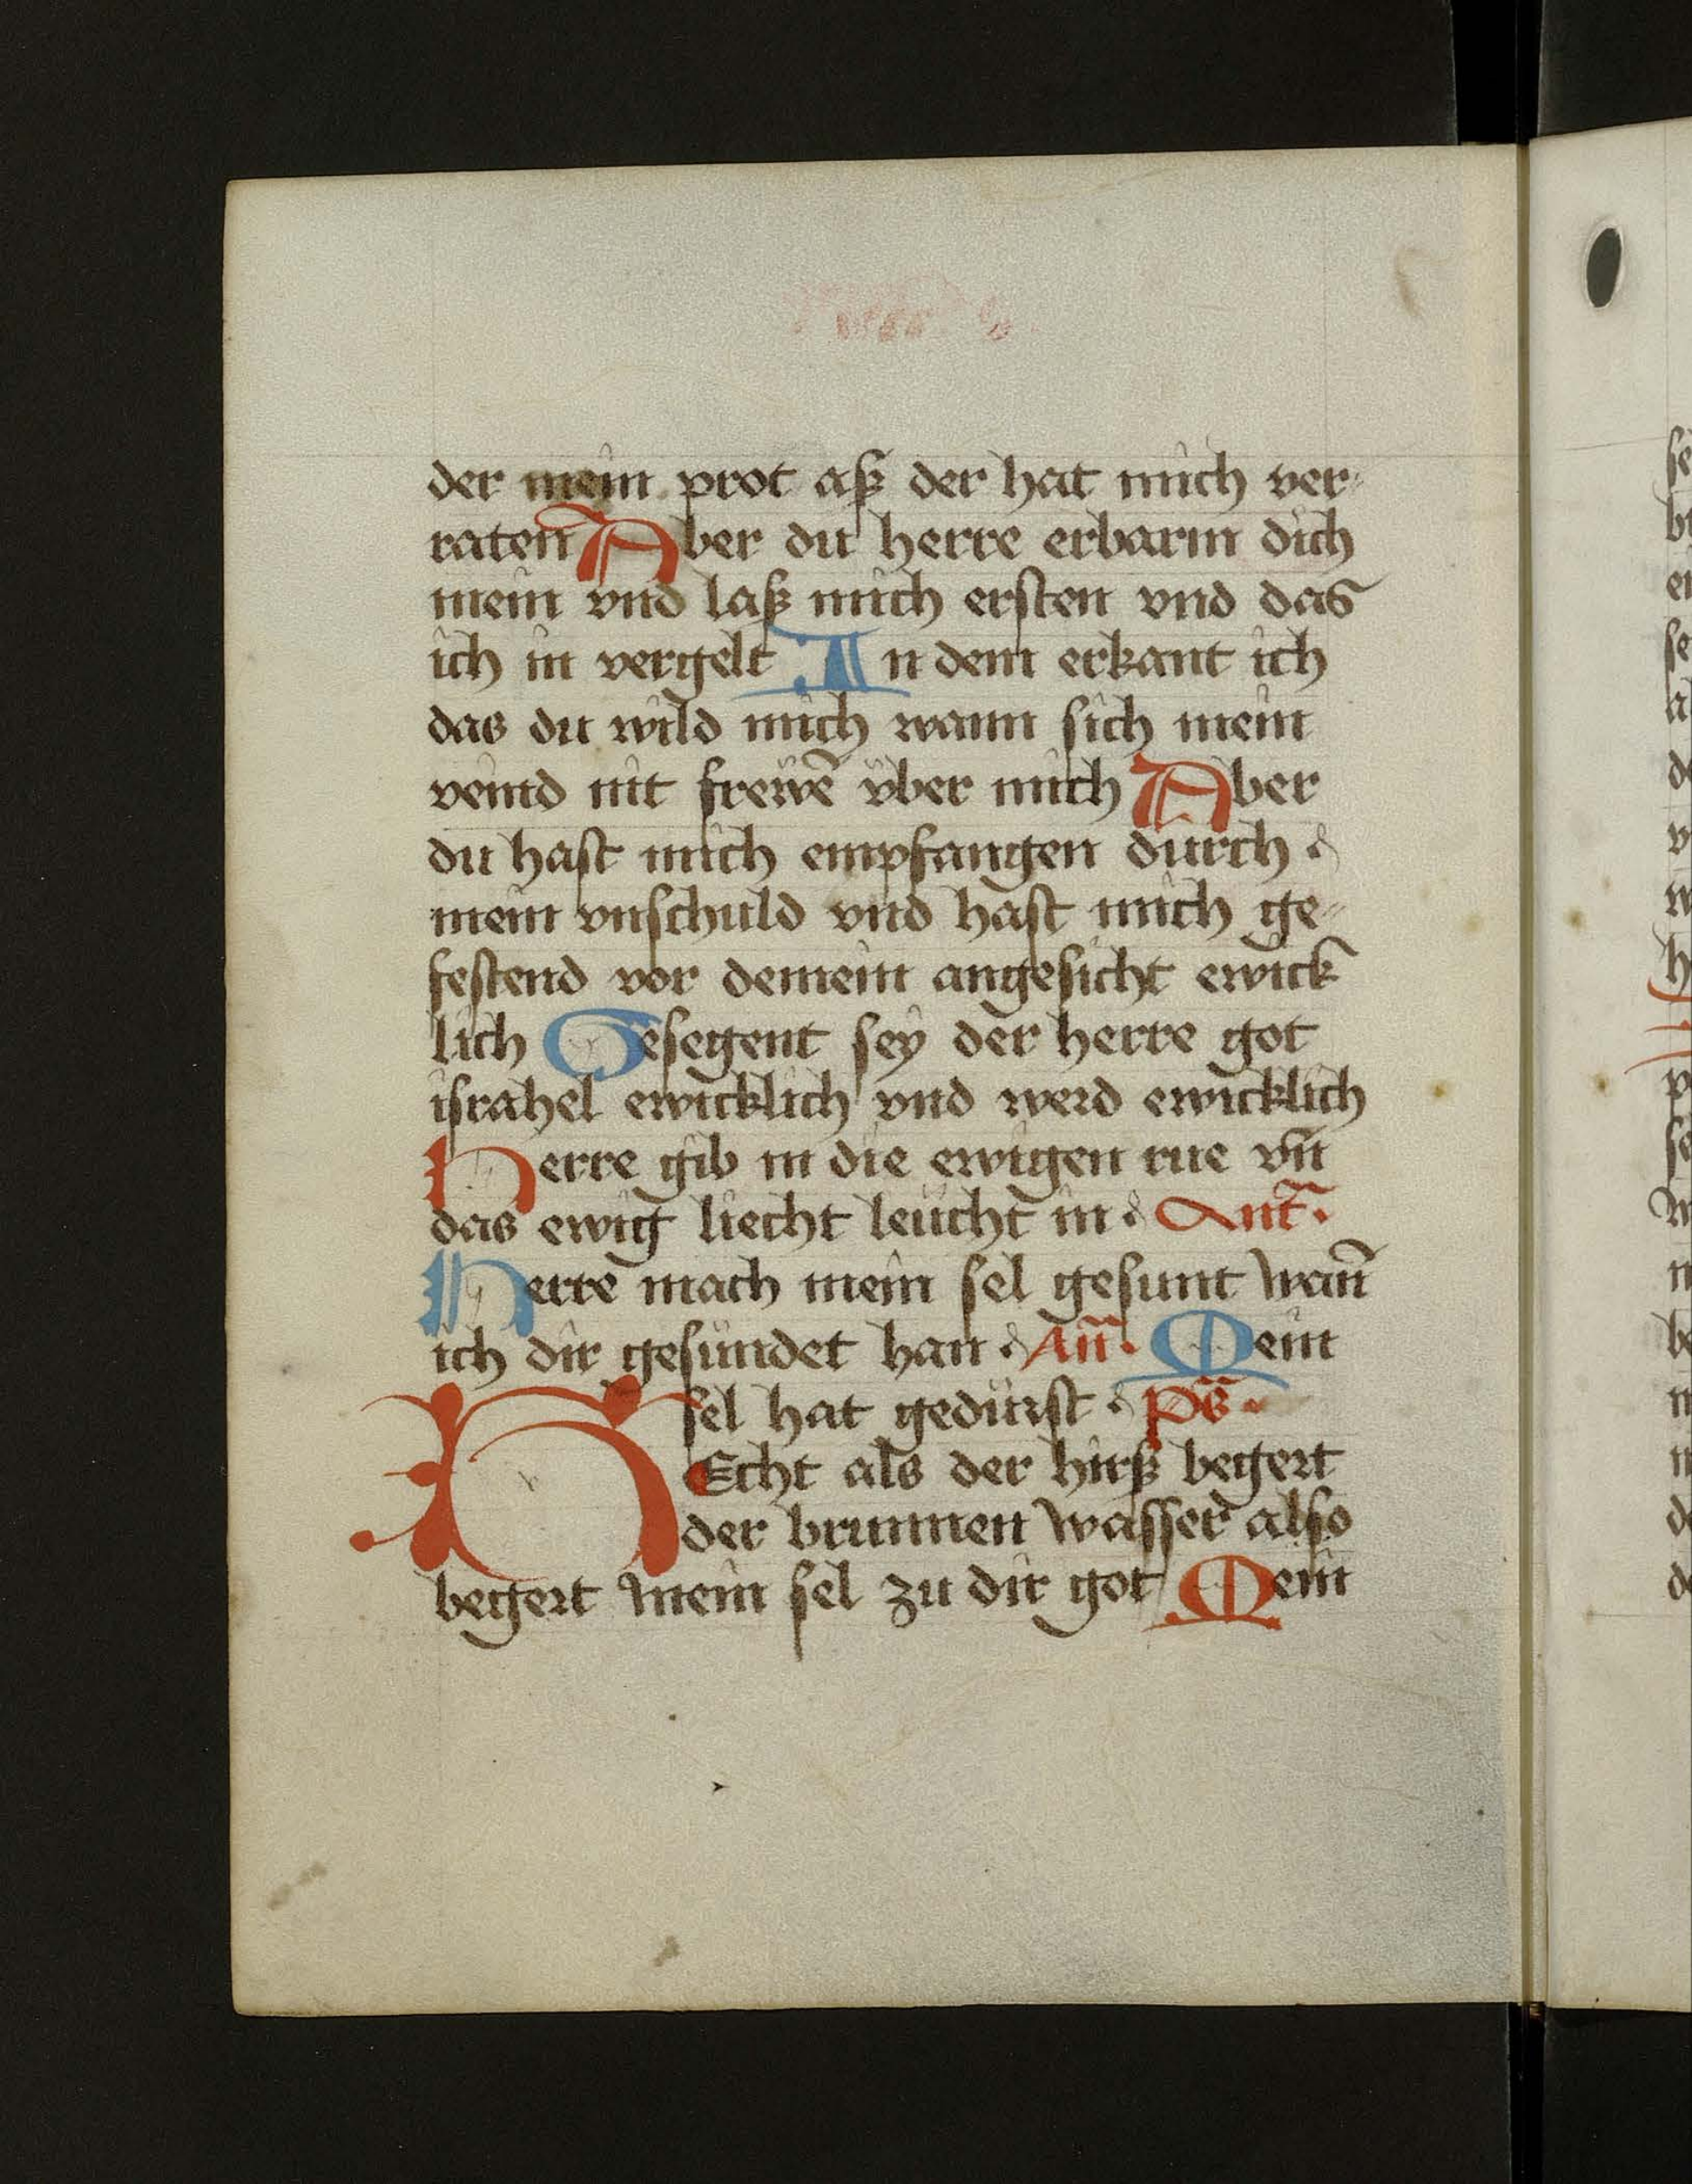 der mein prot aß der hat mich ver
raten Aber du herre erbarm dich
mein vnd laß mich ersten vnd das
ich in vergelt In dem erkant ich
das du wild mich wann sich mein
veind nit frewē vber mich Aber
du hast mich empfangen durch
mein vnschuld vnd hast mich ge
festend vor deinem angesicht ewick
lich Gesegent sey der herre got
israhel ewicklich vnd werd ewicklich
Herre gib in die ewigen rue vn̄
das ewig liecht leücht in Ant̄.
Herre mach mein sel gesunt wan̄
ich dir gesündet han An̄. Mein
sel hat gedürst ps̄.
REcht als der hirß begert
der brunnen wasser also
begert mein sel zu dir got Mein